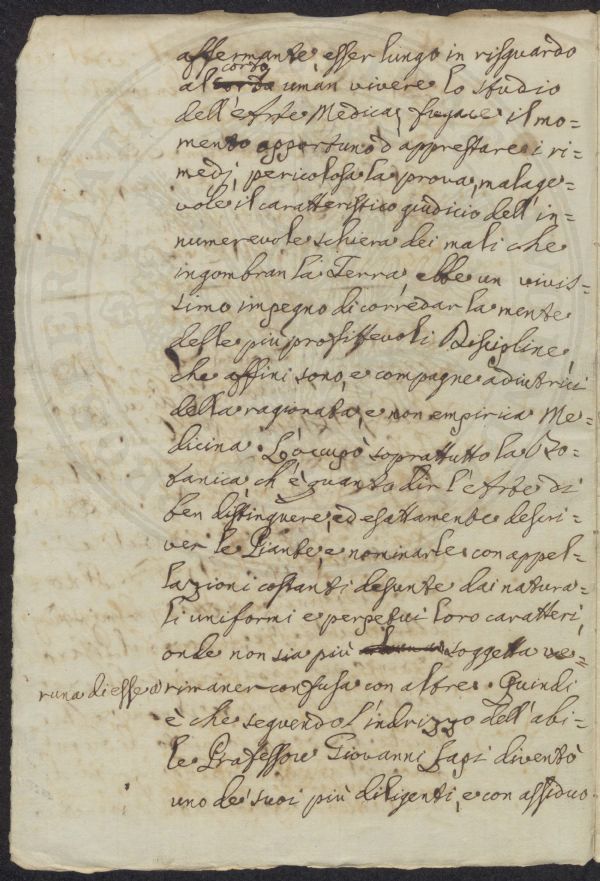 affermante esser lungo in risguardo
al corto uman vivere lo studio
dell'Arte Medica, fugace il mo=
mento opportuno d'apprestare i ri=
medj, pericolosa la prova, malage=
vole il caratteristico giudicio dell'in=
numerevole schiera dei mali che
ingombran la Terra, ebbe un vivis=
simo impegno di corredar la mente
delle più profittevoli Discipline,
che affini sono, e compagne adiutrici
della ragionata, e non empirica Me=
dicina. L'occupò soprattutto la Bo=
tanica ch'è quanto dir l'Arte di
ben distinguere, ed esattamente descri=
ver le Piante, e nominarle con appel=
lazioni costanti desunte dai natura=
li uniformi e perpetui loro caratteri,
onde non sia più soggetta ve=
runa di esse a rimaner confusa con altre. Quindi
è che seguendo l'indrizzo dell'abi=
le Professore Giovanni Lapi diventò
uno de' suoi più diligenti, e con assiduo